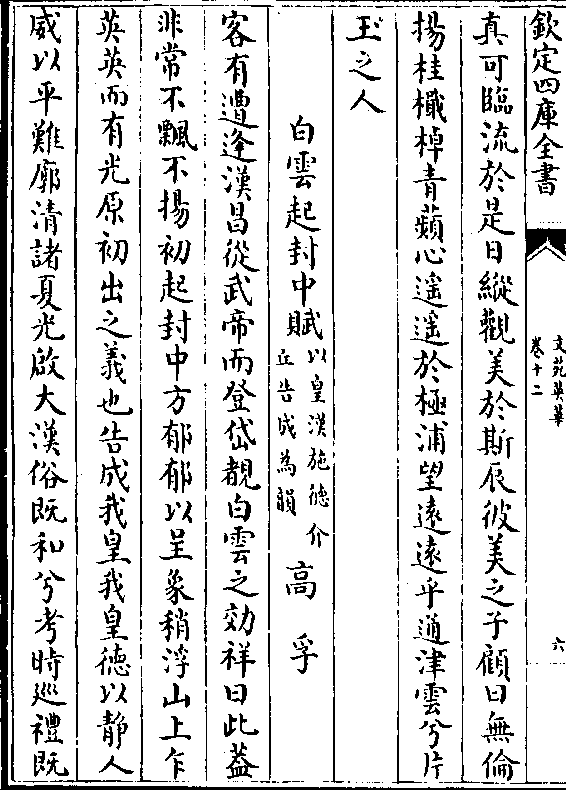 欽定四庫全書
文苑英華
卷十二
六
真可臨流於是日縱觀美於斯辰彼美之子顧曰無倫
揚桂檝棹青蘋心遥遥於極浦望遠遠乎通津雲兮片
玉之人
白雲起封中賦
以皇漢施德介
丘告成為韻
高孚
客有遭逢漢昌從武帝而登岱覩白雲之効祥曰此葢
非常不飄不揚初起封中方郁郁以呈象稍浮山上乍
英英而有光原初出之義也告成我皇我皇德以靜人
威以平難廓清諸夏光啟大漢俗既和兮考時廵禮既